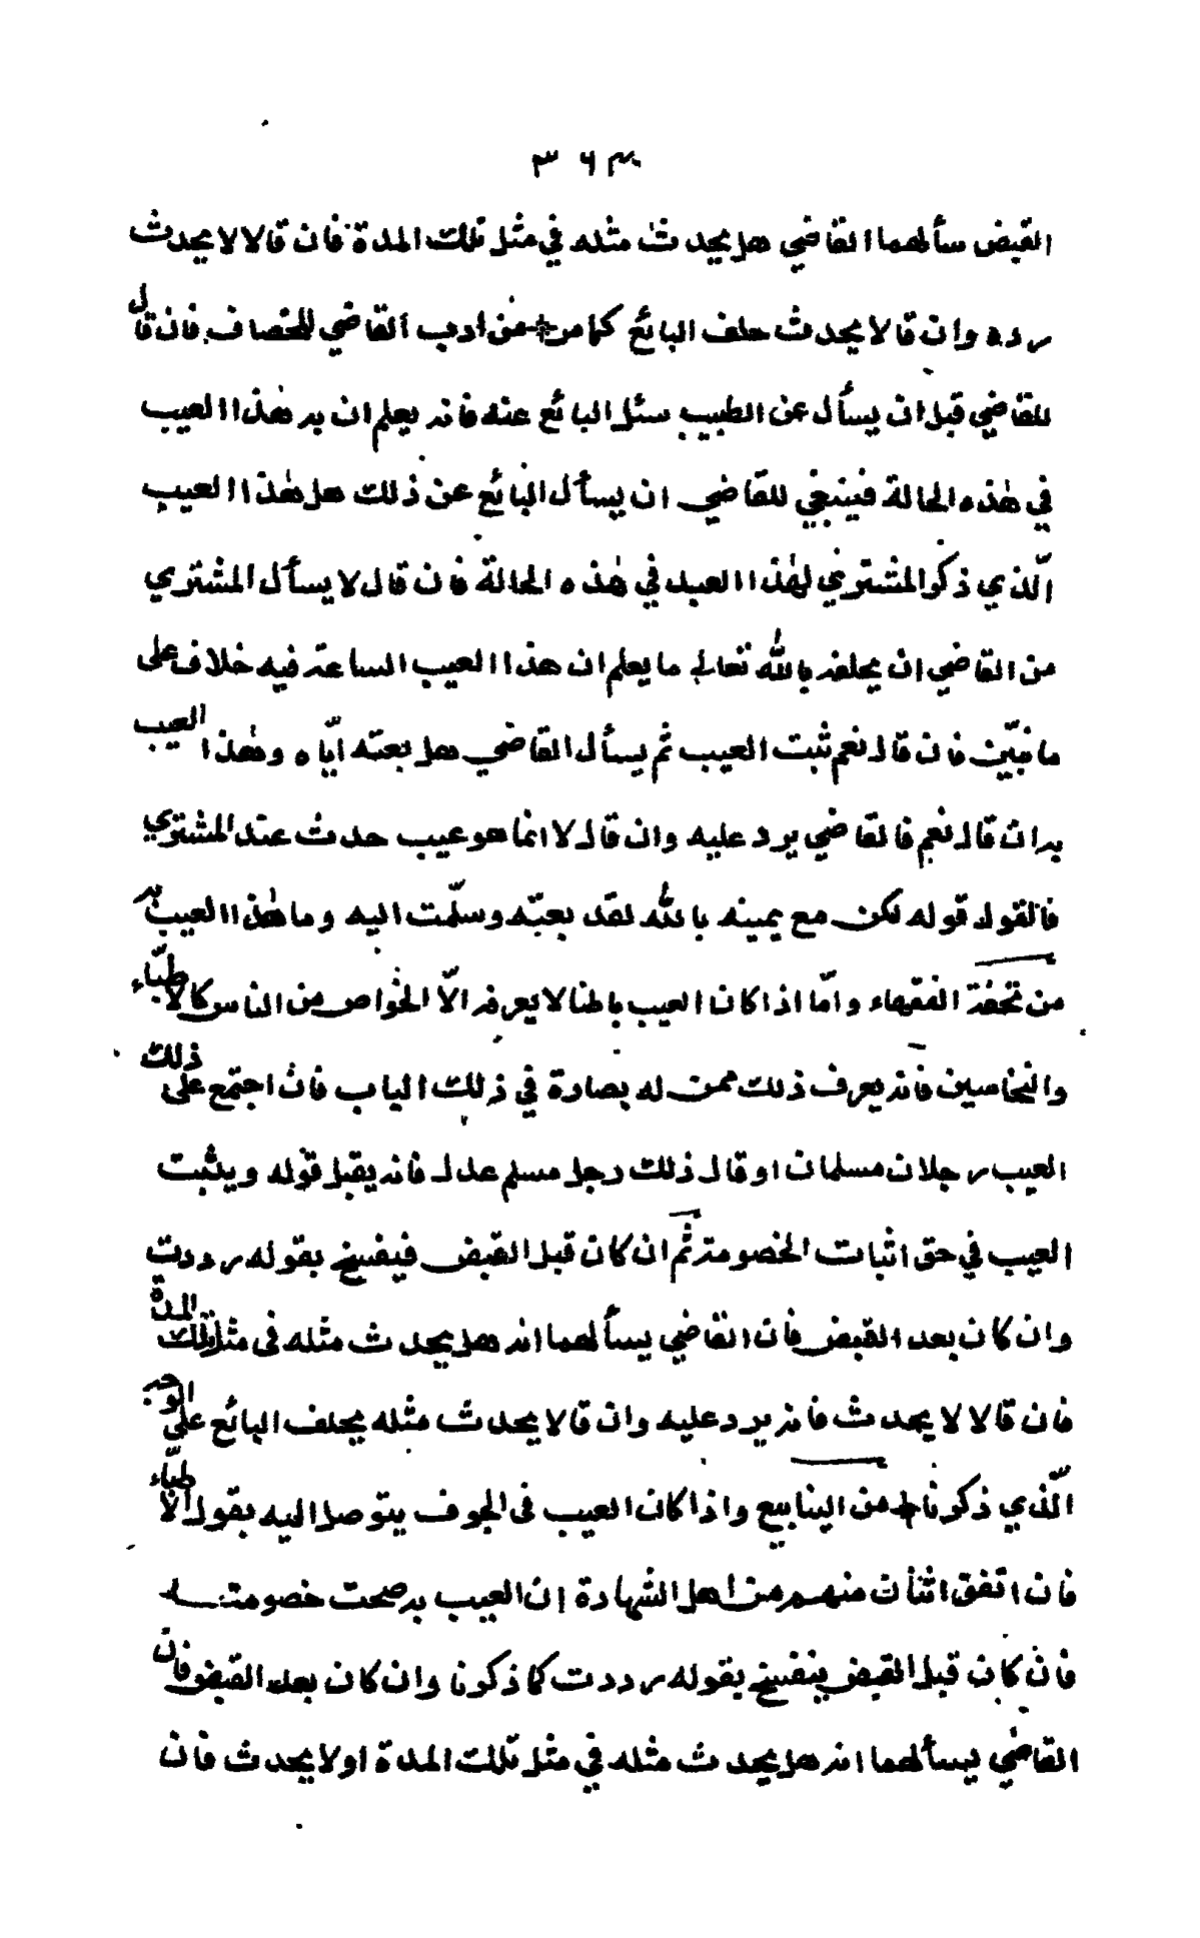 ٣٦٣
القبض سألهما القاضي هل يحدث مثله في مثل تلك المدة فان قالا لا يحدث
رده وان قالا يحدث حلف البائع كما مر من ادب القاضي للخصاف فان قال
للقاضي قبل ان يسأل عن الطبيب سئل البائع عنه فانه يعلم ان به هٰذا العيب
في هٰذه الحالة فينبغي للقاضي ان يسأل البائع عن ذلك هل هٰذا العيب
الّذي ذكر المشتري لهٰذا العبد في هٰذه الحالة فان قال لا يسأل المشتري
من القاضي ان يحلفه بالله تعالى ما يعلم ان هذا العيب الساعة فيه خلاف على
ما نبيّن فان قال نعم ثبت العيب ثم يسأل القاضي هل بعته ايّاه وهٰذا العيب
به ان قال نعم فالقاضي يرد عليه وان قال لا انما هو عيب حدث عند المشتري
فالقول قوله لكن مع يمينه بالله لقد بعته وسلّمت اليه وما هٰذا العيب به
من تحفة الفقهاء وامّا اذا كان العيب باطنا لا يعرفه الّا الخواص من الناس كالاطبّاء
والنخاسين فانه يعرف ذلك ممن له بصارة في ذلك الباب فان اجتمع على ذلك
العيب رجلان مسلمان او قال ذلك رجل مسلم عدل فانه يقبل قوله ويثبت
العيب في حق اثبات الخصومة ثم ان كان قبل القبض فيفسخ بقوله رددت
وان كان بعد القبض فان القاضي يسألهما انه هل يحدث مثله فى مثل تلك المدة
فان قالا لا يحدث فانه يرد عليه وان قالا يحدث مثله يحلف البائع على الوجه
الّذي ذكرنا من الينابيع واذا كان العيب فى الجوف يتوصل اليه بقول الاطبّاء
فان اتفق اثنان منهم من اهل الشهادة ان العيب به صحت خصومته
فان كان قبل القبض ينفسخ بقوله رددت كما ذكرنا وان كان بعد القبض فان
القاضي يسألهما انه هل يحدث مثله في مثل تلك المدة او لا يحدث فان